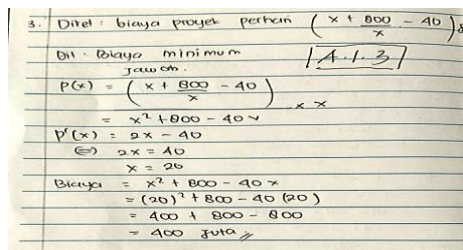 3. Diket : biaya proyek perhari (x + 800/x - 40)
Dit : Biaya minimum |A.1.3|
Jawab.
P(x) = (x + 800/x - 40) x x
= x² + 800 - 40x
P'(x) = 2x - 40
⇔ 2x = 40
x = 20
Biaya = x² + 800 - 40x
= (20)² + 800 - 40 (20)
= 400 + 800 - 800
= 400 juta //